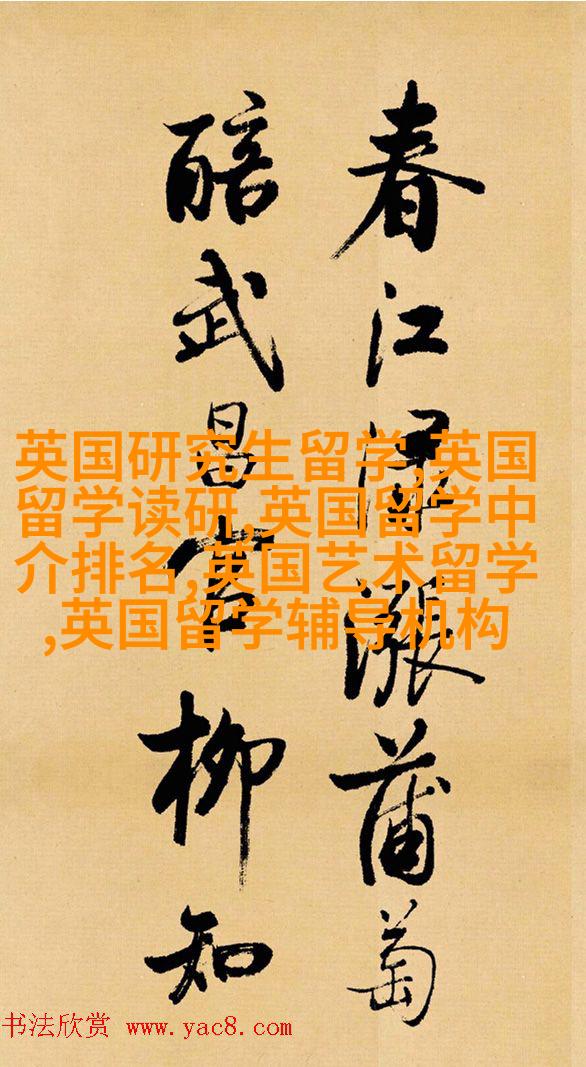 春江漲蒲萄
醅武昌官柳知
英国研究生留学,英国
留学读研,英国留学中
介排名,英国艺术留学
,英国留学辅导机构
书法欣赏 www.yac8.com